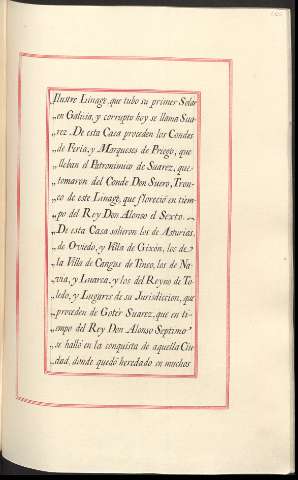 Ilustre Linage, que tubo su primer Solar
„en Galicia, y corrupto hoy se llama Sua-
„rez. De esta Casa proceden los Condes
„de Feria, y Marqueses de Priego, que
„lleban el Patronimico de Suarez, que
„tomaron del Conde Don Suero, Tron-
„co de este Linage, que floreció en tiem-
„po del Rey Don Alonso el Sexto.
„De esta Casa salieron los de Asturias,
„de Oviedo, y Villa de Gixón, los de
„la Villa de Cangas de Tineo, los de Na-
„via, y Luarca, y los del Reyno de To-
„ledo, y Lugares de su Jurisdiccion, que
„proceden de Goter Suarez, que en ti-
„empo del Rey Don Alonso Septimo
„se halló en la conquista de aquella Ciu-
„dad, donde quedó heredado en muchos